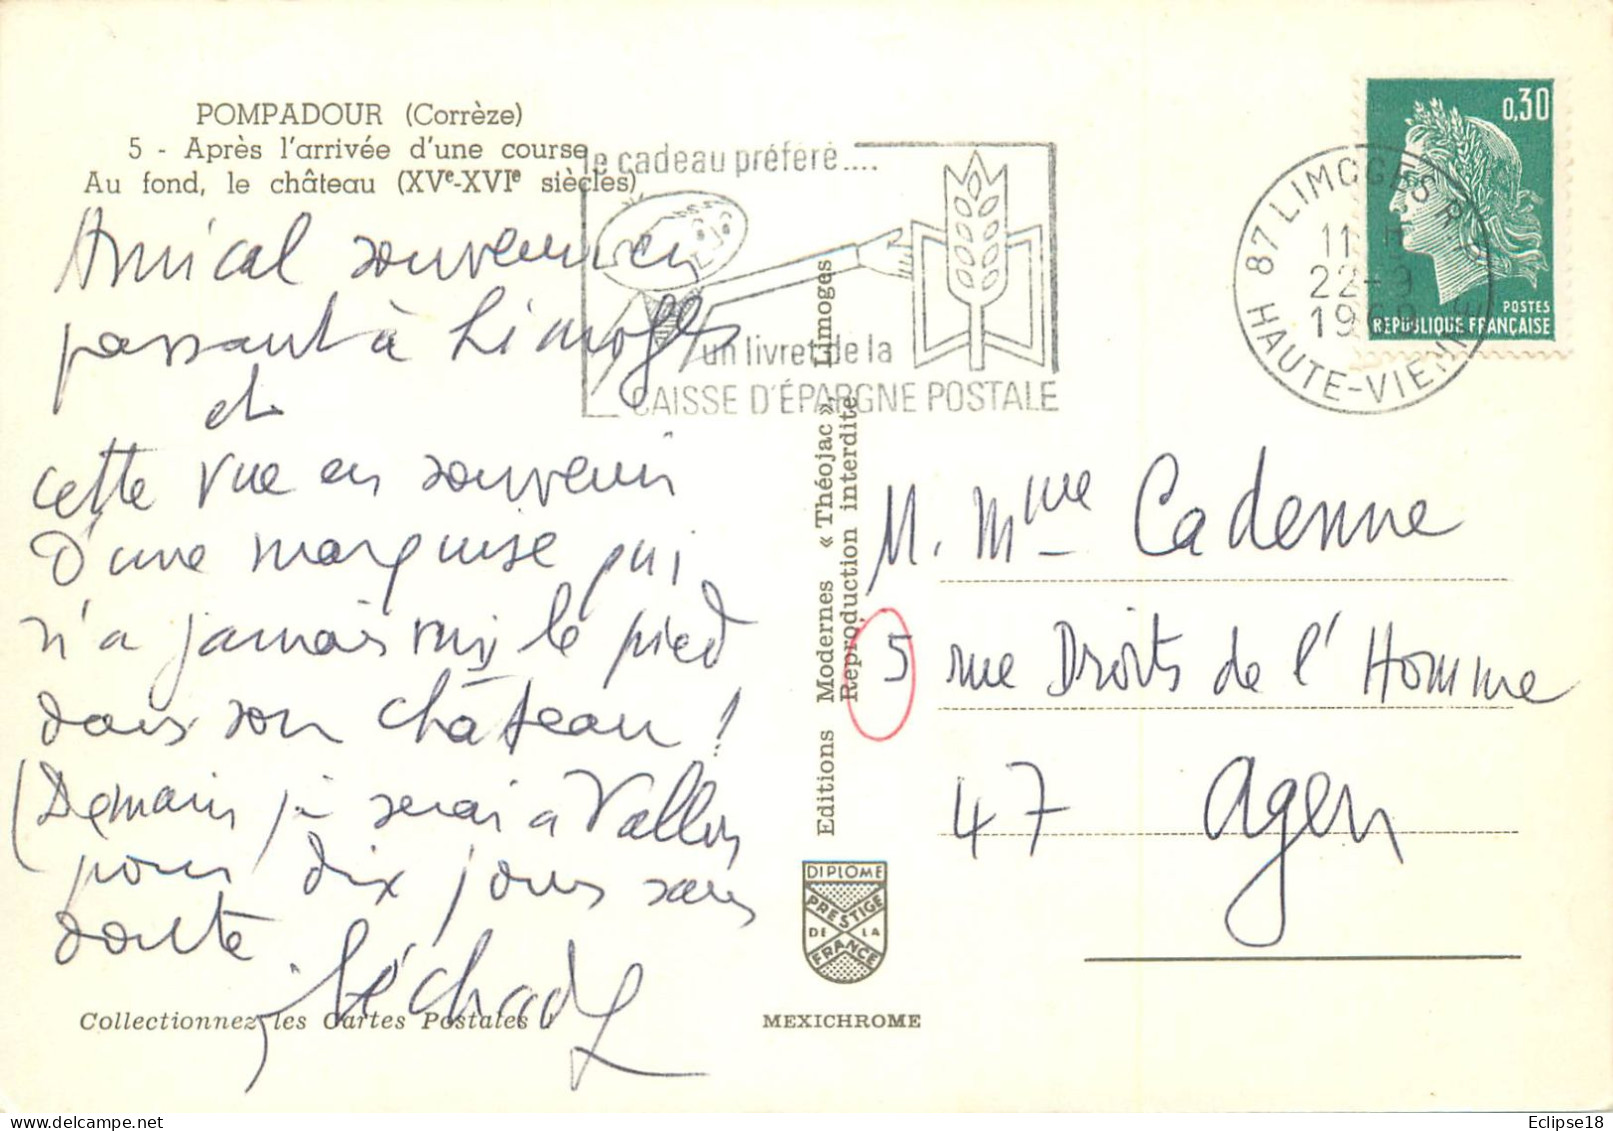 POMPADOUR (Corrèze)
5 - Après l'arrivée d'une course
Au fond, le château (XVe-XVIe siècles)
Amical souvenir en
passant à Limoges
et
cette vue en souvenir
d'une marquise qui
n'a jamais mis le pied
dans son château !
(Demain je serai à Vallon
pour dix jours sans
doute
Collectionnez les Cartes Postales !
le cadeau préféré....
un livret de la
CAISSE D'ÉPARGNE POSTALE
Editions Modernes « Théojac », Limoges
Reproduction interdite
DIPLOME
PRESTIGE
DE LA
FRANCE
MEXICHROME
87 LIMOGES R.P.
22-9
1969
HAUTE-VIENNE
0,30
POSTES
REPUBLIQUE FRANÇAISE
M. Mme Cadenne
5 rue Droits de l'Homme
47 Agen
Delcampe.net
Eclipse18